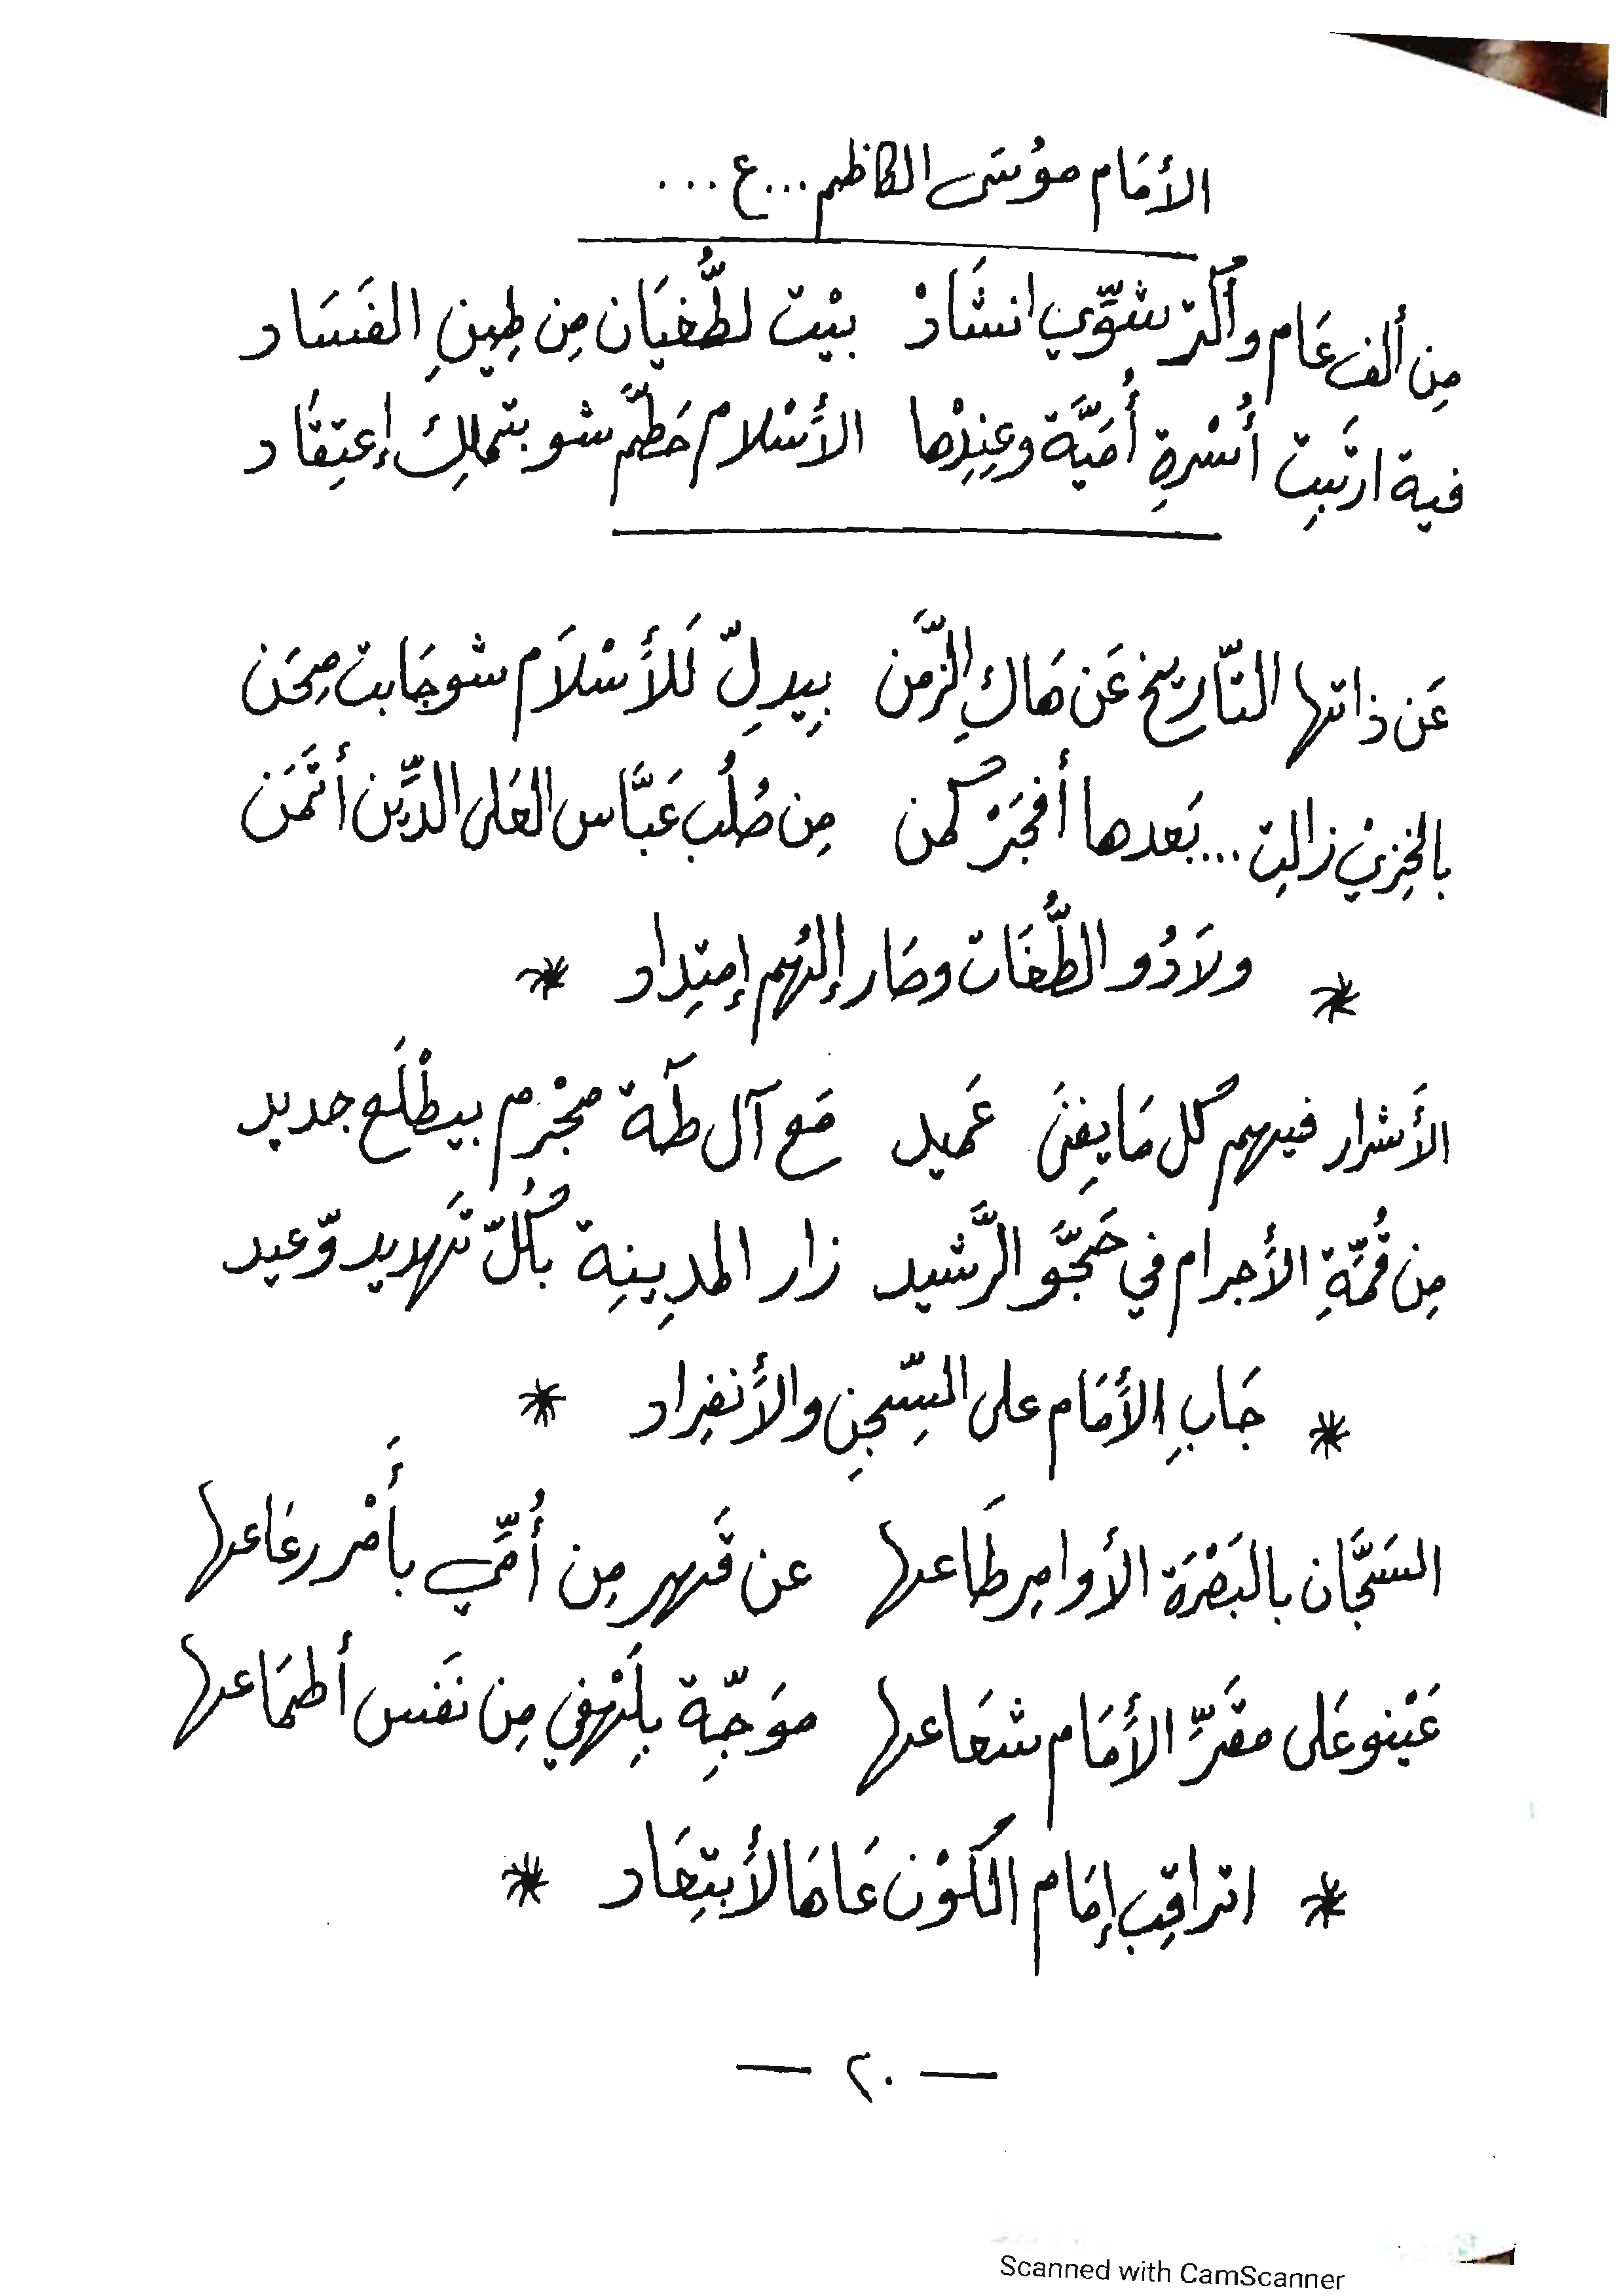 الأمَام موُسَى الكاظم...ع...
مِن ألف عَام وأكتر شوَّي انشَادْ بيْت لطُّغيَان مِن طِينِ الفَسَاد
فية ارتَبيِت أُسْرةِ أُمَيَّة وعِنِدْها الأَسْلام حَطَّم شو بتملِك إعتِقَاد
عَن ذاتها التّاريخ عَن هَاكِ الزَّمَن بِيدلِّ لَلأَسْلَام شو جَابت مِحَن
بالخِزيْ زالِت...بَعدها أفجَرْ كمن مِن صُلُب عَبَّاس العَلى الدِّين أتمَن
* ولَادُو الطُّغَات وصَار إلهُم إمتِداد *
الأَشرار فيهم كل مَا يِفنَى عَميد مَع آل طَهَ مجْرم بيطْلَع جديد
مِن قُمَّةِ الأَجرام في حَجَّو الرَّشيد زار المدِينِة بكُلّ تَهديد وّعيد
* جَابِ الأَمَام على السِّجنِ والأَنفِراد *
السَجَّان بالبَصْرَة الأَوامِر طَاعها عن قَهر مِن أُمِّي بأَمْر رعَاعها
عَيْنو عَلى مقَرِّ الأَمَام شعَاعها موَجِّة بِلَهْفي مِن نَفس أطمَاعها
* اتراقِب إمَام الكَوْن عَاهَالأَبتِعَاد *
— ٢٠ —
Scanned with CamScanner